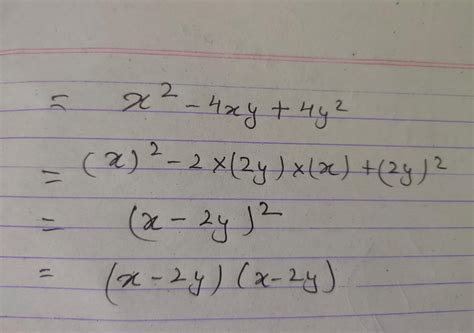 = x² - 4xy + 4y²
= (x)² - 2 × (2y) × (x) + (2y)²
= (x - 2y)²
= (x - 2y) (x - 2y)